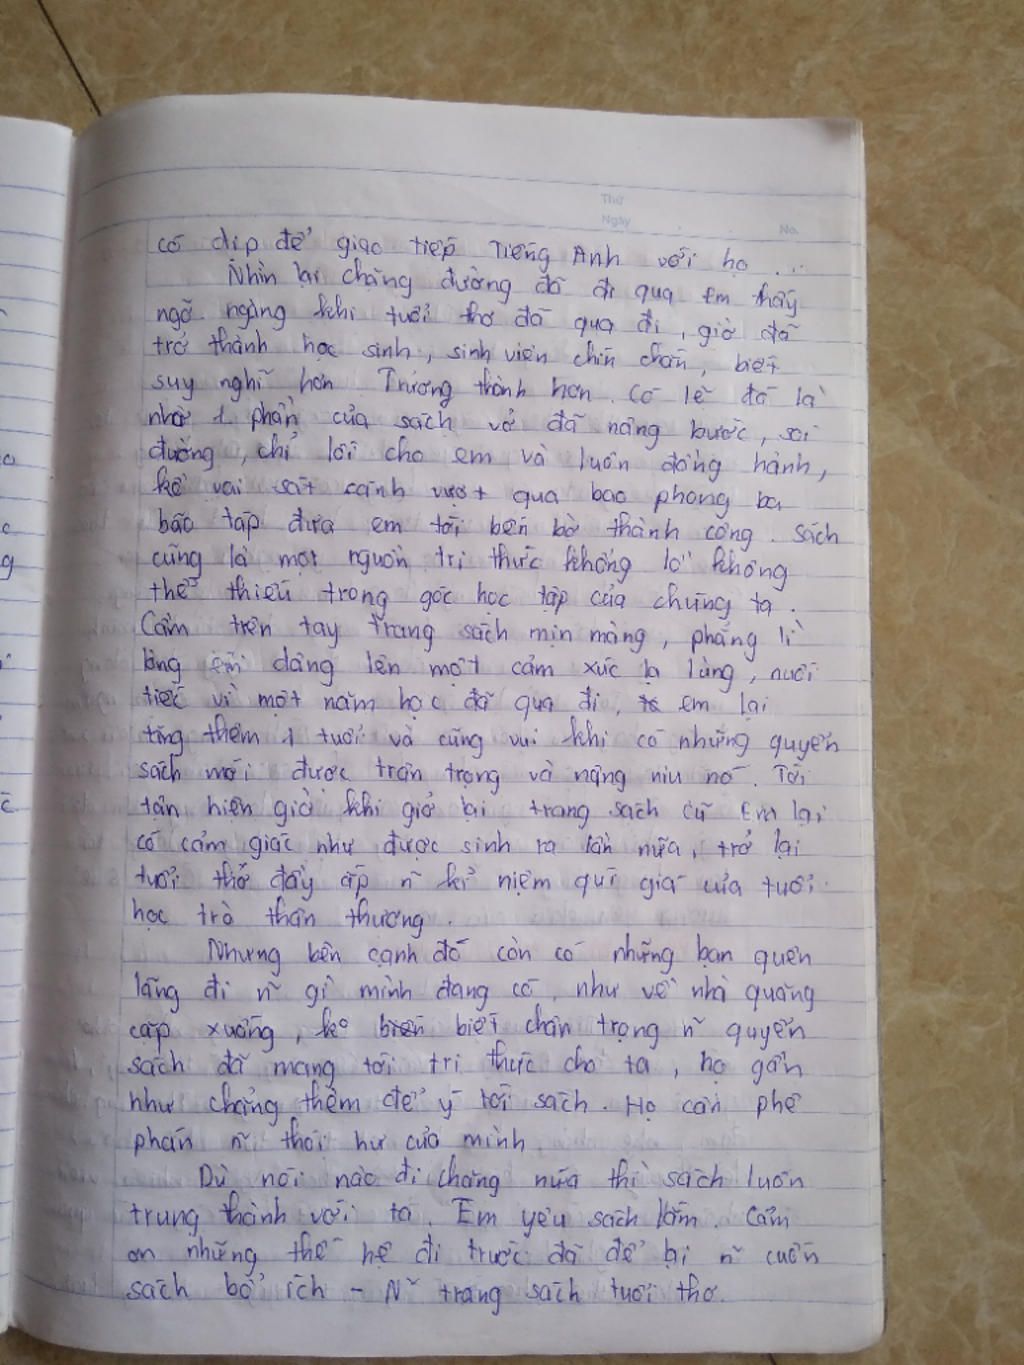 Thứ
Ngày
No.
có dịp để giao tiếp Tiếng Anh với họ...
Nhìn lại chặng đường đã đi qua em thấy
ngỡ ngàng khi tuổi thơ đã qua đi, giờ đã
trở thành học sinh, sinh viên chín chắn, biết
suy nghĩ hơn Trưởng thành hơn. Có lẽ đó là
nhờ 1 phần của sách vở đã nâng bước, soi
đường, chỉ lối cho em và luôn đồng hành,
kề vai sát cánh vượt qua bao phong ba
bão táp đưa em tới bến bờ thành công. Sách
cũng là một nguồn tri thức khổng lồ không
thể thiếu trong góc học tập của chúng ta.
Cầm trên tay trang sách mịn màng, phẳng lì
lòng em dâng lên một cảm xúc lạ lùng, nuối
tiếc vì một năm học đã qua đi, em lại
tăng thêm 1 tuổi và cũng vui khi có những quyển
sách mới được trân trọng và nâng niu nó. Tới
tận hiện giờ khi giở lại trang sách cũ Em lại
có cảm giác như được sinh ra lần nữa, trở lại
tuổi thơ đầy ắp n~ kỉ niệm quí giá của tuổi
học trò thân thương.
Nhưng bên cạnh đó còn có những bạn quên
lãng đi n~ gì mình đang có, như về nhà quăng
cặp xuống, ko biết chân trọng n~ quyển
sách đã mang tới tri thức cho ta, họ gần
như chẳng thèm để ý tới sách. Họ cần phê
phán n~ thói hư của mình.
Dù nơi nào đi chăng nữa thì sách luôn
trung thành với ta. Em yêu sách lắm. Cảm
ơn những thế hệ đi trước đã để lại n~ cuốn
sách bổ ích - N~ trang sách tuổi thơ.